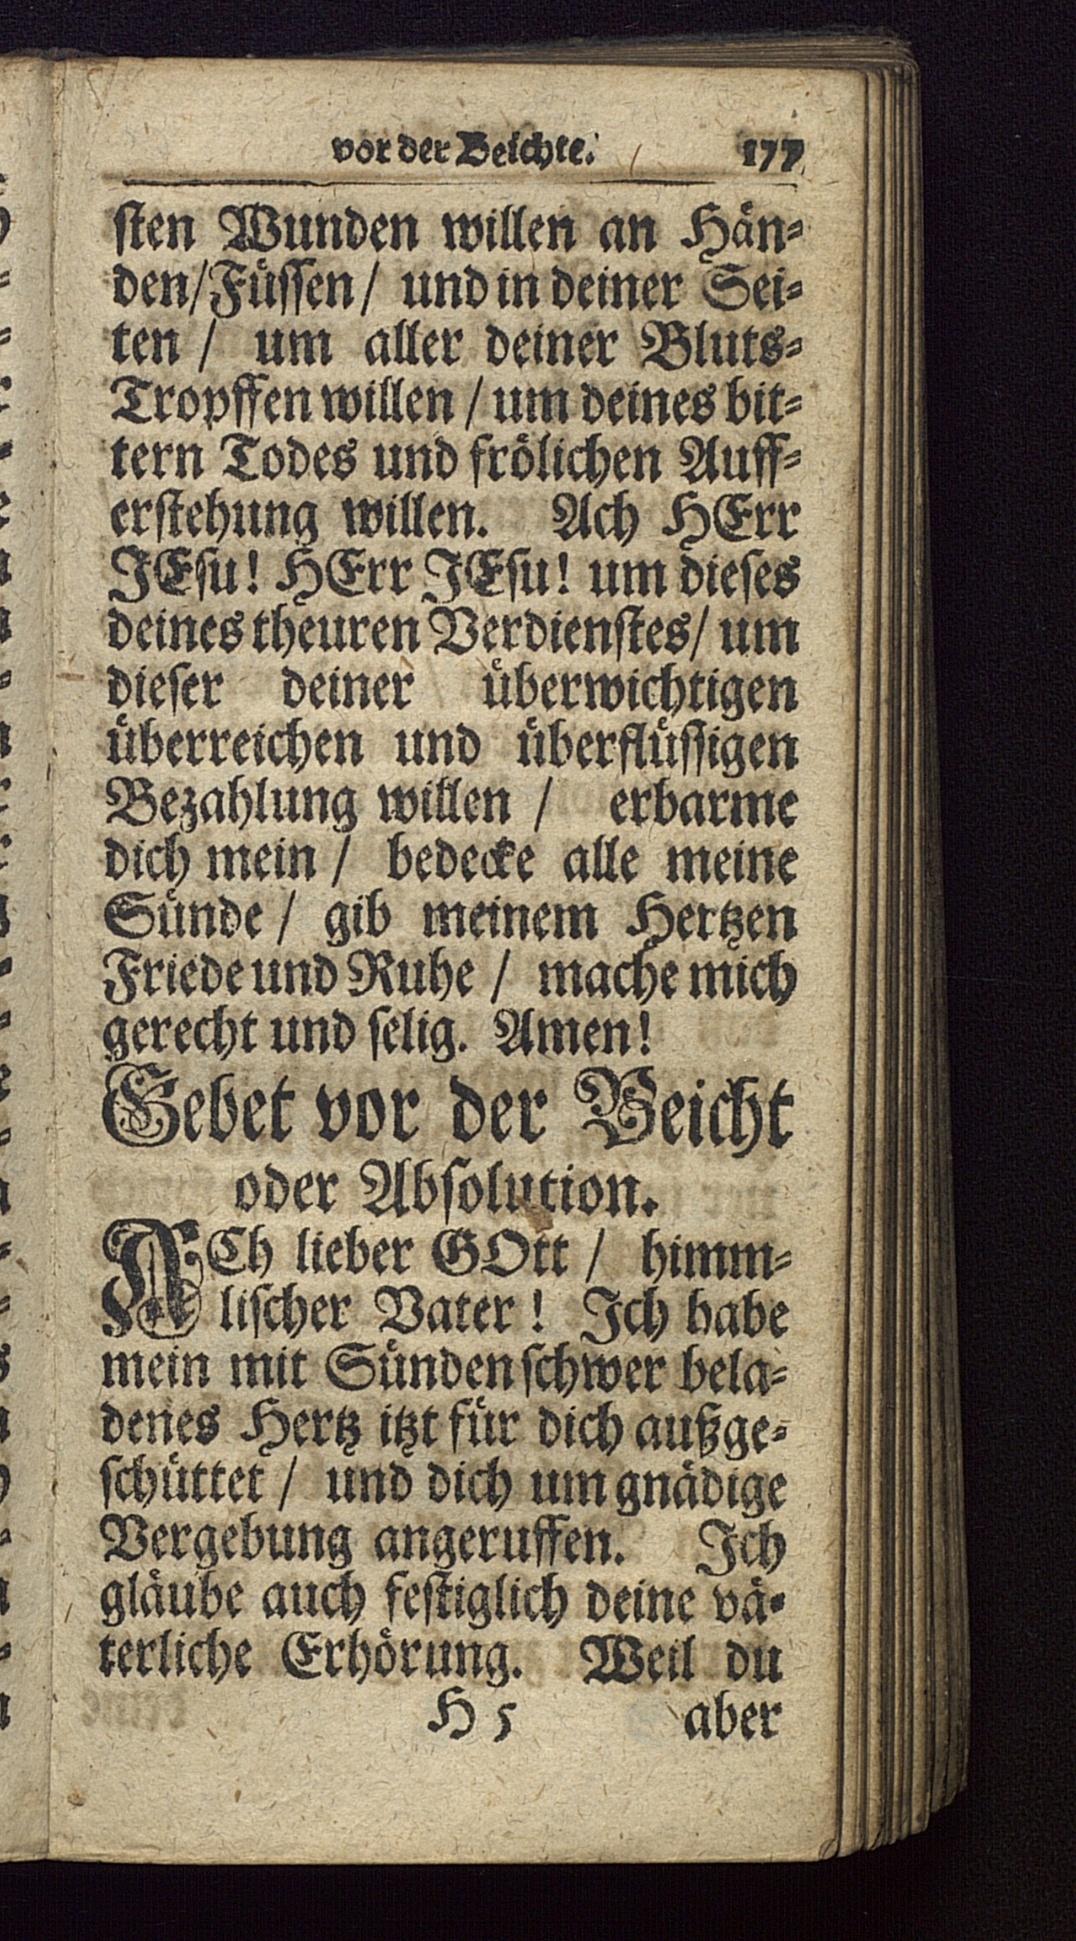 vor der Beichte. 177
sten Wunden willen an Hän-
den/Füssen/ und in deiner Sei-
ten / um aller deiner Bluts-
Tropffen willen / um deines bit-
tern Todes und frölichen Auff-
erstehung willen. Ach HErr
JEsu! HErr JEsu! um dieses
deines theuren Verdienstes/ um
dieser deiner überwichtigen
überreichen und überflüssigen
Bezahlung willen / erbarme
dich mein / bedecke alle meine
Sünde / gib meinem Hertzen
Friede und Ruhe / mache mich
gerecht und selig. Amen!
Gebet vor der Beicht
oder Absolution.
ACh lieber GOtt / himm-
lischer Vater! Ich habe
mein mit Sünden schwer bela-
denes Hertz itzt für dich außge-
schüttet / und dich um gnädige
Vergebung angeruffen. Ich
gläube auch festiglich deine vä-
terliche Erhörung. Weil du
H 5 aber